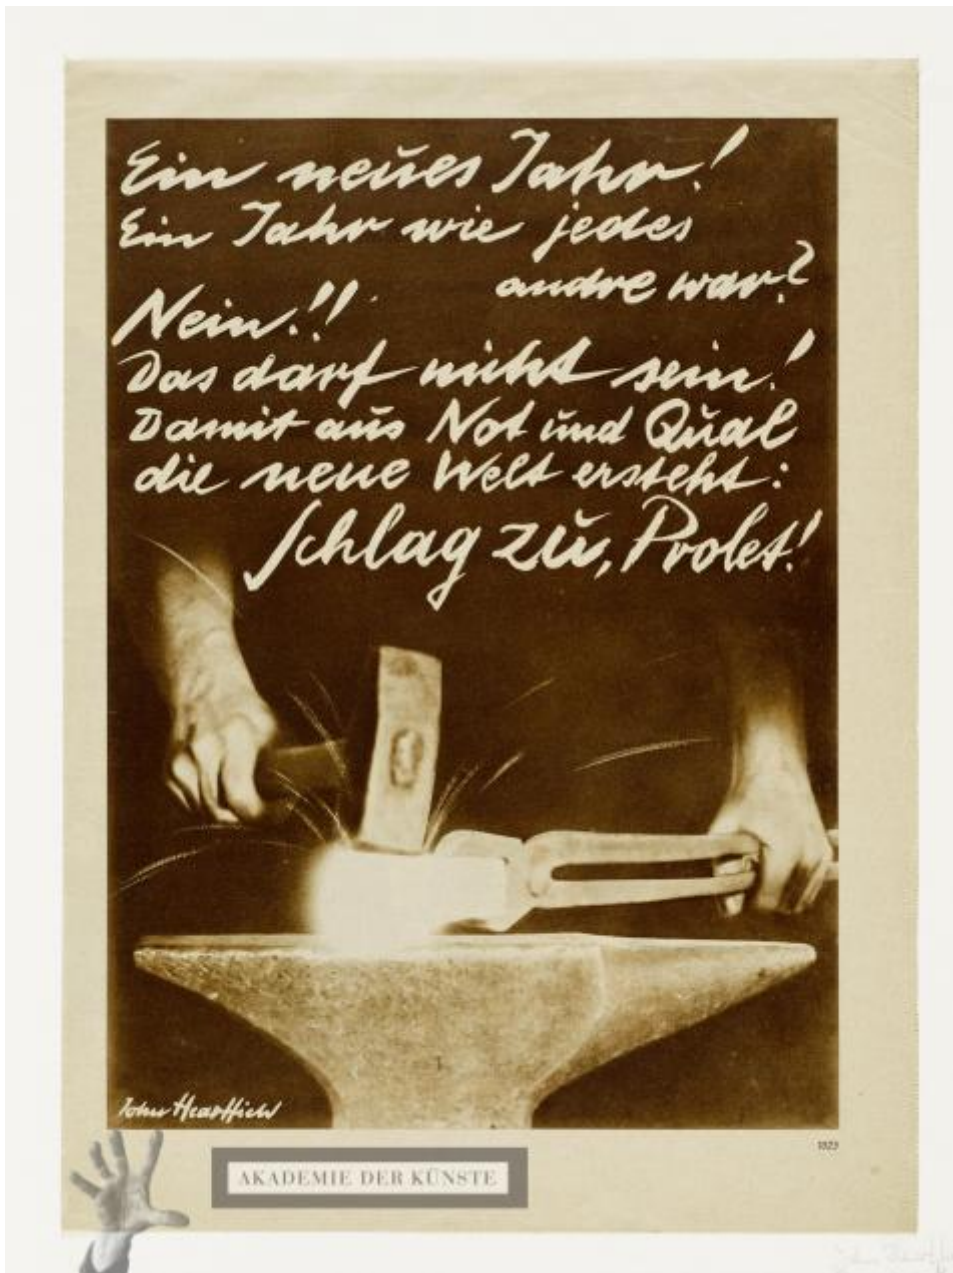 Ein neues Jahr!
Ein Jahr wie jedes
andre war?
Nein!!
Das darf nicht sein!
Damit aus Not und Qual
die neue Welt ersteht:
Schlag zu, Prolet!
John Heartfield
AKADEMIE DER KÜNSTE